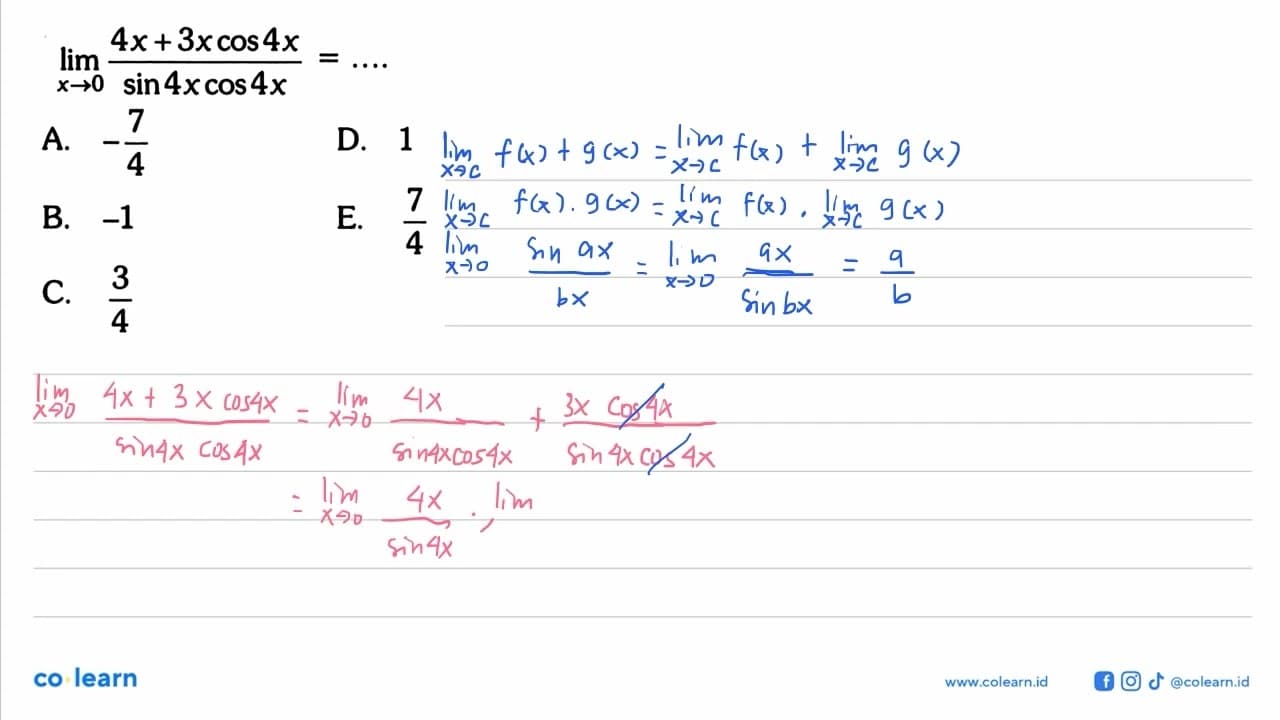 lim x→0 (4x + 3x cos 4x)/(sin 4x cos 4x) = ....
A. -7/4
B. –1
C. 3/4
D. 1
E. 7/4
lim x→c f(x) + g(x) = lim x→c f(x) + lim x→c g(x)
lim x→c f(x) . g(x) = lim x→c f(x) . lim x→c g(x)
lim x→0 sin ax/bx = lim x→0 ax/sin bx = a/b
lim x→0 (4x + 3x cos4x)/(sin4x cos4x) = lim x→0 4x/(sin4x cos4x) + (3x cos4x)/(sin4x cos4x)
= lim x→0 4x/sin4x . lim
co learn
www.colearn.id
@colearn.id